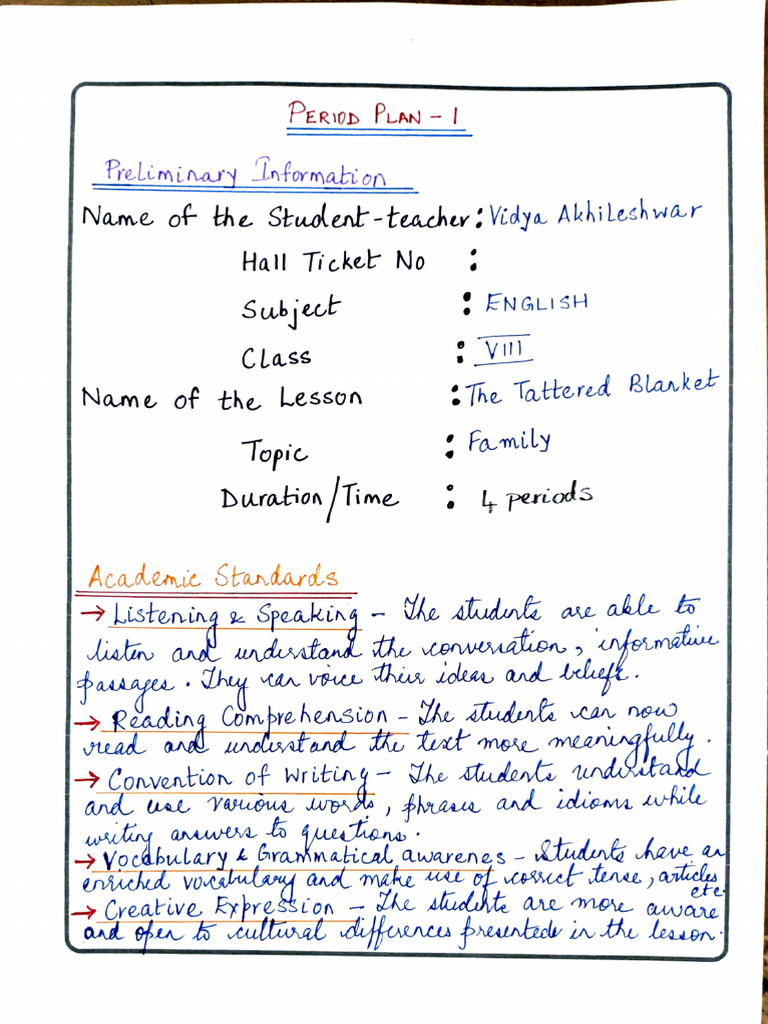 PERIOD PLAN - 1
Preliminary Information
Name of the Student-teacher : Vidya Akhileshwar
Hall Ticket No :
Subject : ENGLISH
Class : VIII
Name of the Lesson : The Tattered Blanket
Topic : Family
Duration/Time : 4 periods
Academic Standards
→ Listening & Speaking - The students are able to
listen and understand the conversation, informative
passages. They can voice their ideas and beliefs.
→ Reading Comprehension - The students can now
read and understand the text more meaningfully.
→ Convention of Writing - The students understand
and use various words, phrases and idioms while
writing answers to questions.
→ Vocabulary & Grammatical awarenes - Students have an
enriched vocabulary and make use of correct tense, articles
etc
→ Creative Expression - The students are more aware
and open to cultural differences presentede in the lesson.